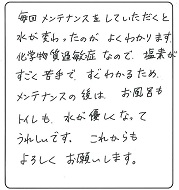 毎回メンテナンスをしていただくと
水が変わったのが よくわかります
化学物質過敏症 なので、塩素が
すごく苦手で、すぐわかるため
メンテナンスの後は、お風呂も
トイレも、水が優しくなって
うれしいです。これからも
よろしく お願いします。